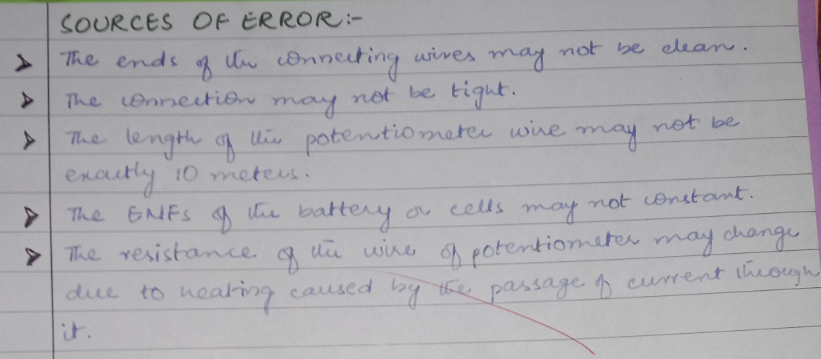 SOURCES OF ERROR:-
➤ The ends of the connecting wires may not be clean.
➤ The connection may not be tight.
➤ The length of the potentiometer wire may not be
exactly 10 meters.
➤ The EMFs of the battery or cells may not constant.
➤ The resistance of the wire of potentiometer may change
due to heating caused by the passage of current through
it.